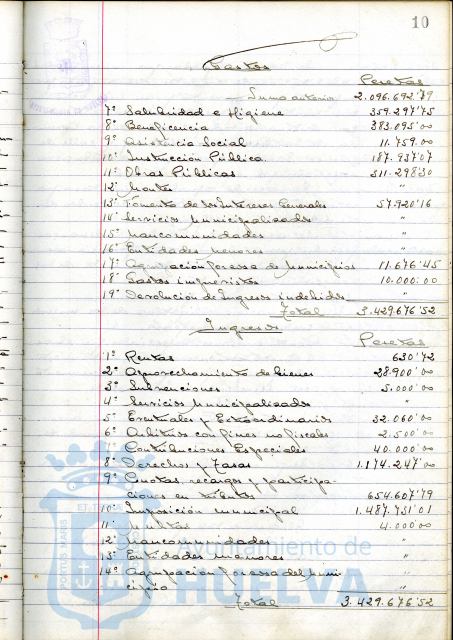 10
Gastos
Pesetas
Suma anterior 2.096.692'79
7º Salubridad e Higiene 359.297'75
8º Beneficencia 383.095'00
9º Asistencia Social 11.759'00
10º Instrucción Pública 187.937'07
11º Obras Públicas 311.298'30
12º Montes "
13º Fomento de los Intereses Generales 57.920'16
14º Servicios Municipalizados "
15º Mancomunidades "
16º Entidades Menores "
17º Agrupación forzosa de Municipios 11.676'45
18º Gastos imprevistos 10.000'00
19º Devolución de Ingresos indebidos "
Total 3.429.676'52
Ingresos
Pesetas
1º Rentas 630'72
2º Aprovechamiento de bienes 28.900'00
3º Subvenciones 5.000'00
4º Servicios Municipalizados "
5º Eventuales y Extraordinarios 32.060'00
6º Arbitrios con fines no fiscales 2.500'00
7º Contribuciones Especiales 40.000'00
8º Derechos y Tasas 1.174.247'00
9º Cuotas, recargos y participa-
ciones en tributos 654.607'79
10º Imposición municipal 1.487.731'01
11º Multas 4.000'00
12º Mancomunidades "
13º Entidades menores "
14º Agrupación forzosa del Muni-
cipio "
Total 3.429.676'52
PORTUS MARIS
Ayuntamiento de
HUELVA